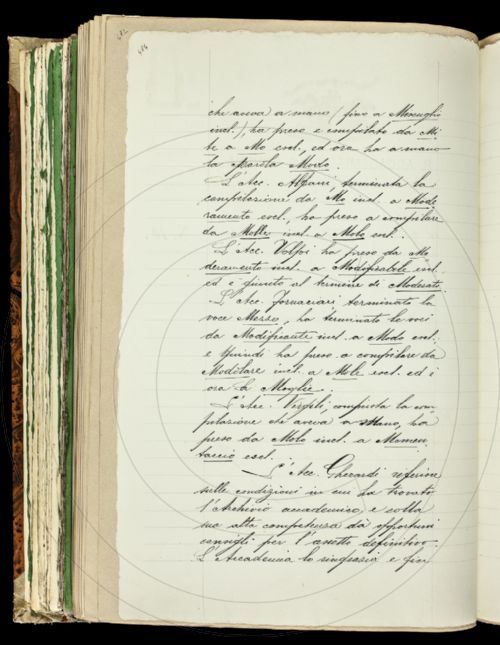 484
che aveva a mano (fino a Mencughi
incl.), ha preso e compilato da Mi-
te a Mo escl., ed ora ha a mano
la parola Modo.
L'Acc. Alfani terminata la
compilazione da Mo incl. a Mode-
ramento escl., ha preso a compilare
da Molle incl. a Molo escl.
L'Acc. Volpi ha preso da Mo-
deramento incl. a Modificabile escl.
ed è giunto al termine di Moderato.
L'Acc. Fornaciari terminata la
voce Mezzo, ha terminato le voci
da Modificante incl. a Modo escl.;
e quindi ha preso a compilare da
Modulare incl. a Mole escl. ed è
ora a Moglie.
L'Acc. Vergili, compiuta la com-
pilazione che aveva a mano, ha
preso da Molo incl. a Momen-
taccio escl.
L'Acc. Gherardi riferisce
sulle condizioni in cui ha trovato
l'Archivio accademico, e colla
sua alta competenza dà opportuni
consigli per l'assetto definitivo.
L'Accademia lo ringrazia e